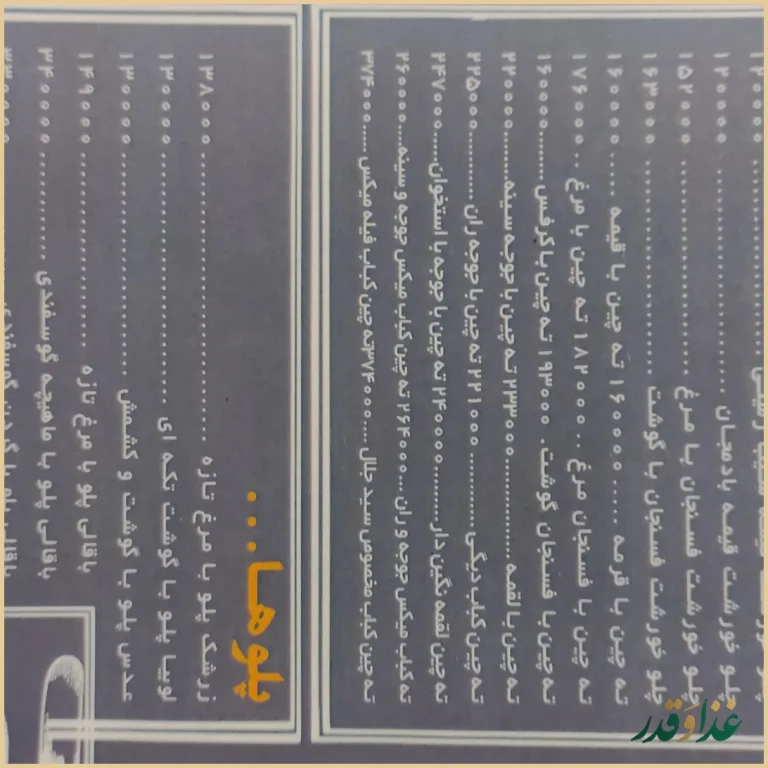 چلو خورشت قیمه بادمجان .......... ۱۲۰۰۰۰
چلو خورشت فسنجان با مرغ .......... ۱۵۲۰۰۰
چلو خورشت فسنجان با گوشت .......... ۱۶۳۰۰۰
ته چین با قرمه ..... ۱۶۰۰۰۰ ته چین با قیمه .... ۱۶۰۰۰۰
ته چین با فسنجان مرغ .. ۱۸۲۰۰۰ ته چین با مرغ .. ۱۷۶۰۰۰
ته چین با فسنجان گوشت . ۱۹۳۰۰۰ ته چین با کرفس ........ ۱۶۰۰۰۰
ته چین با لقمه .......... ۲۳۳۰۰۰ ته چین با جوجه سینه ....... ۲۲۰۰۰۰
ته چین کباب دیگی .......... ۲۲۱۰۰۰ ته چین با جوجه ران .......... ۲۲۵۰۰۰
ته چین لقمه نگین دار ........ ۲۴۰۰۰۰ ته چین با جوجه با استخوان .... ۲۴۷۰۰۰
ته کباب میکس جوجه و ران ... ۲۶۴۰۰۰ ته چین کباب میکس جوجه و سینه ... ۲۶۰۰۰۰
ته چین کباب مخصوص سید جلال .... ۳۷۴۰۰۰ ته چین کباب فیله میکس ..... ۳۷۴۰۰۰
پلوها...
زرشک پلو با مرغ تازه .......... ۱۳۸۰۰۰
لوبیا پلو با گوشت تکه ای .......... ۱۳۰۰۰۰
عدس پلو با گوشت و کشمش .......... ۱۳۰۰۰۰
باقالی پلو با مرغ تازه .......... ۱۴۹۰۰۰
باقالی پلو با ماهیچه گوسفندی .......... ۳۴۰۰۰۰
غذا و قدر